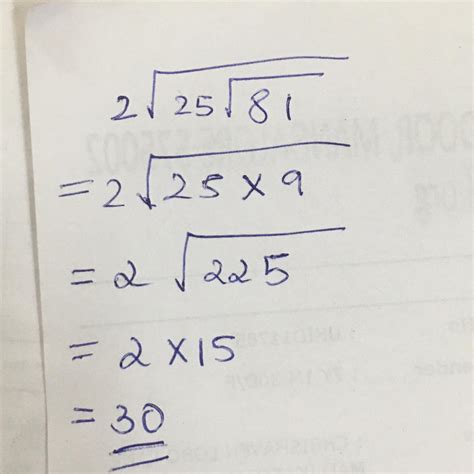 2√25√81
= 2√25 × 9
= 2 √225
= 2 × 15
= 30